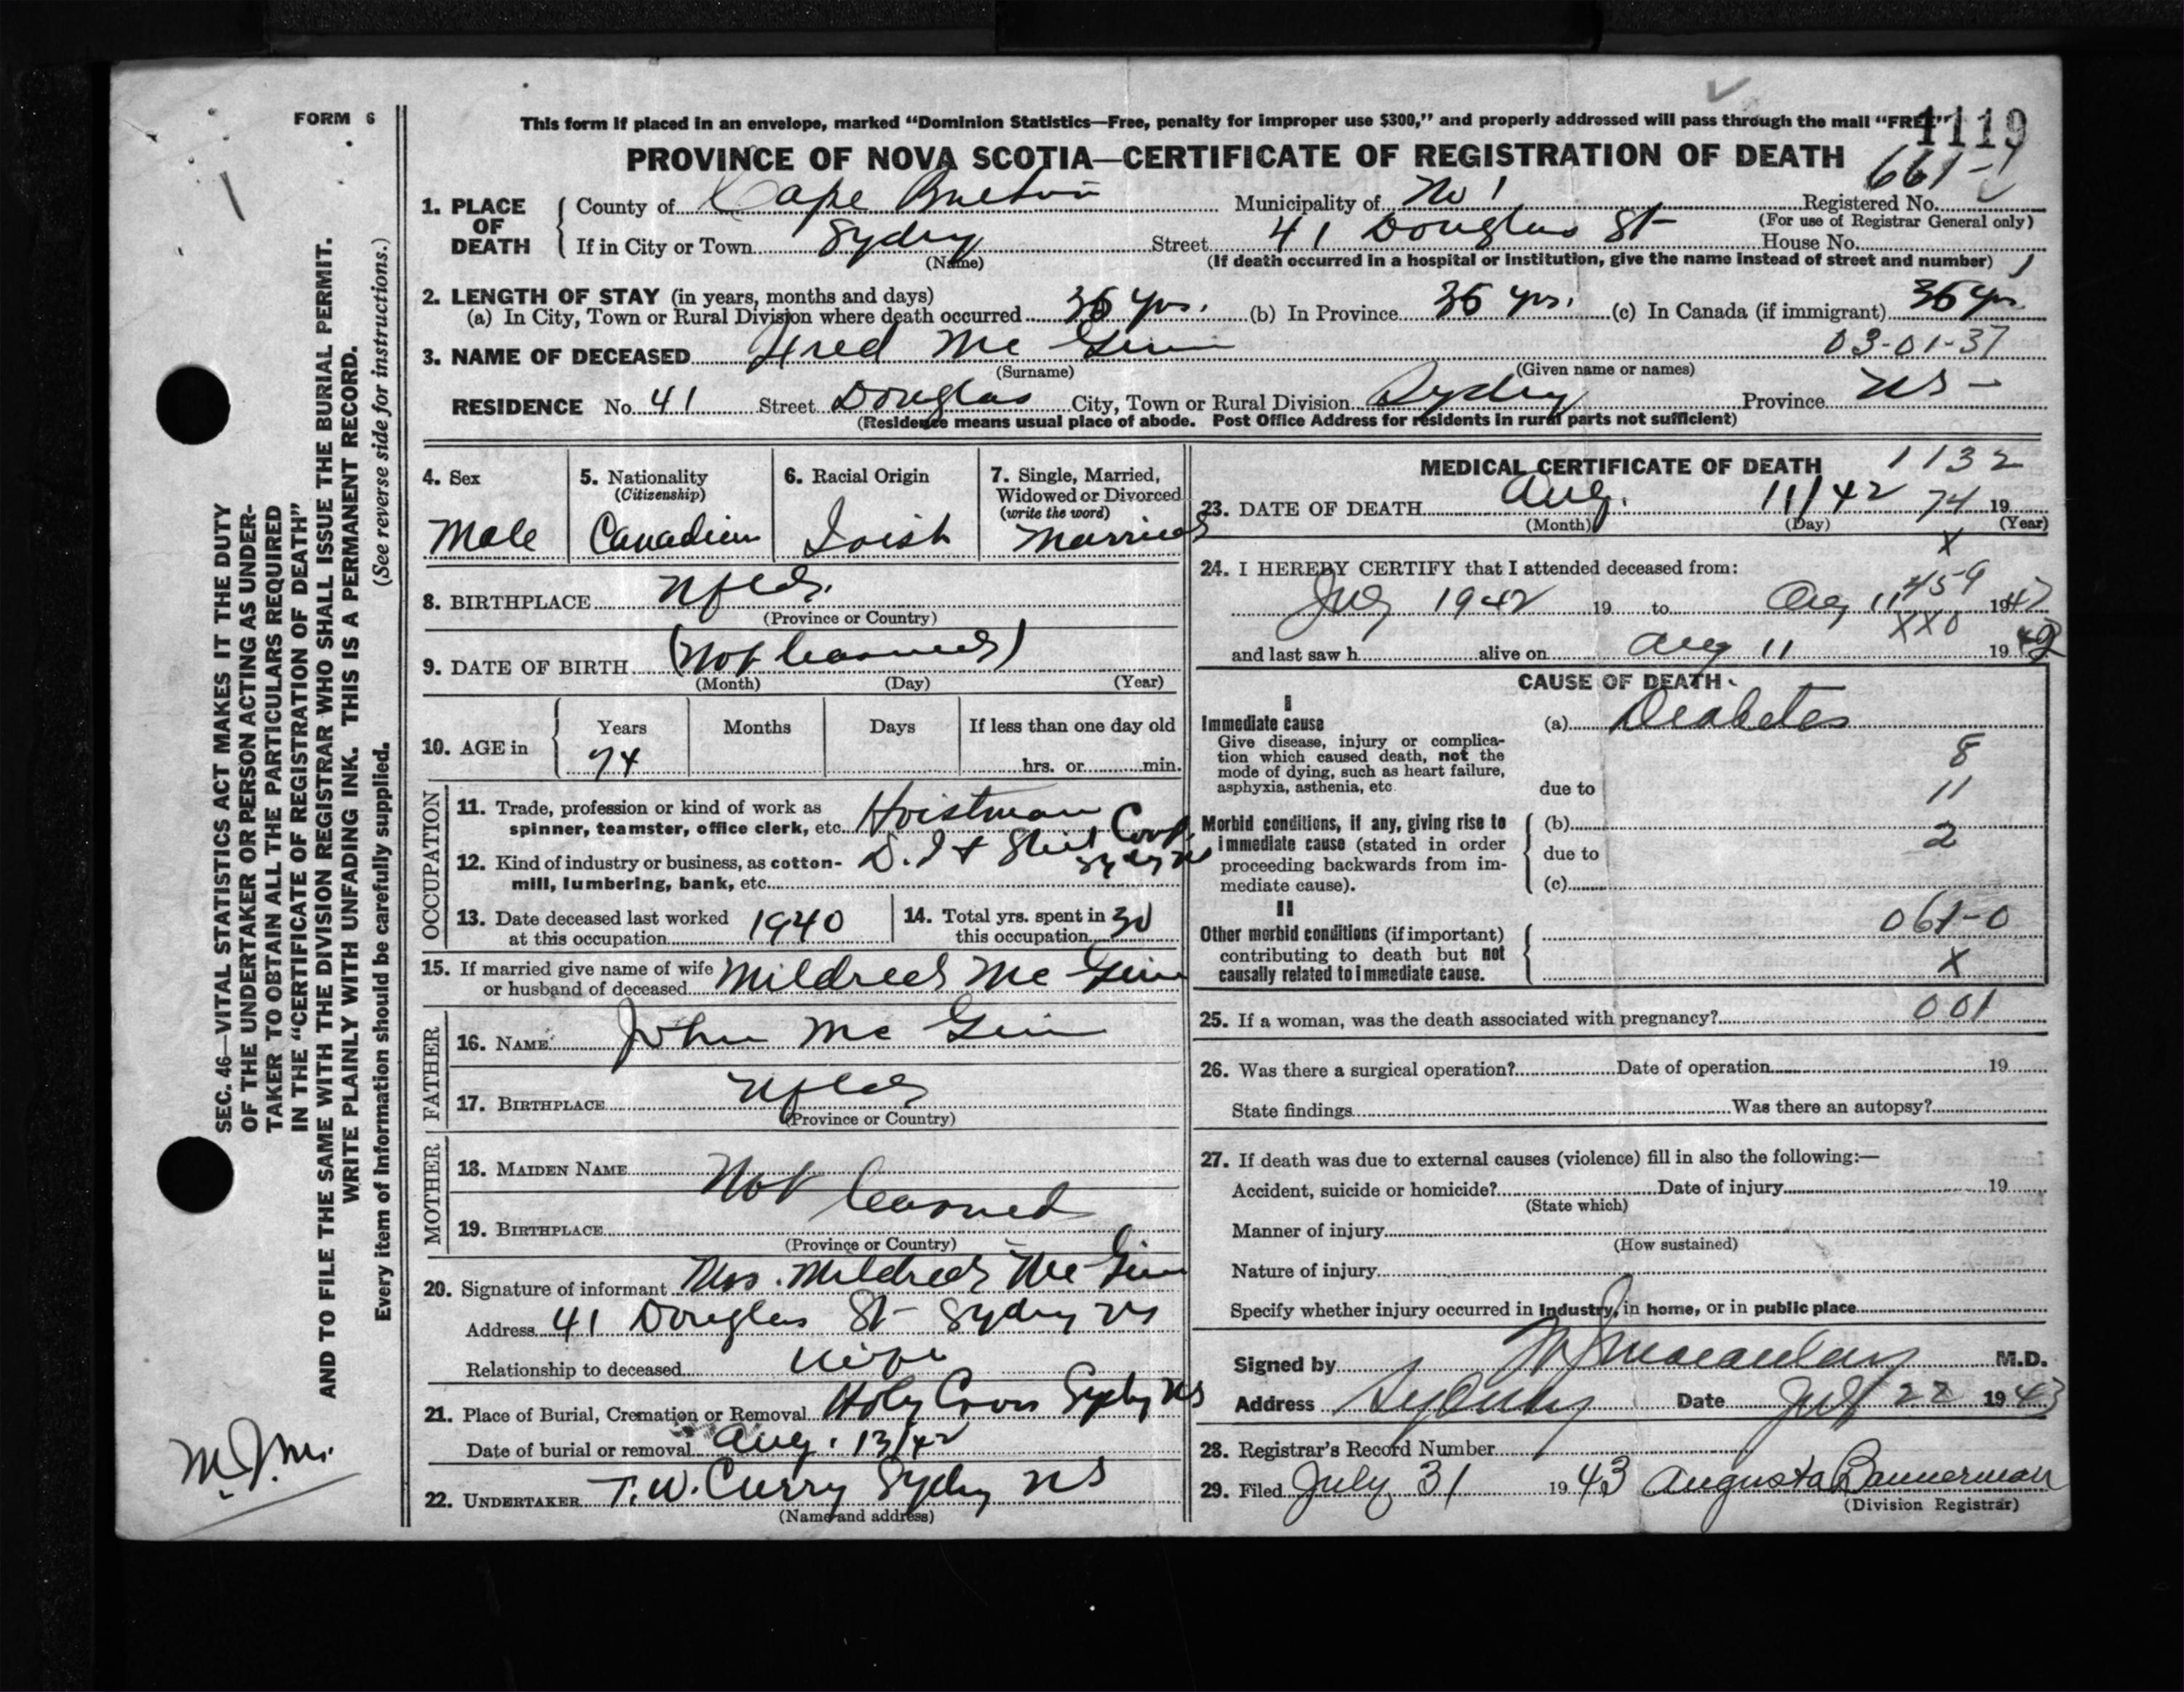 FORM 6
This form if placed in an envelope, marked “Dominion Statistics—Free, penalty for improper use $300,” and properly addressed will pass through the mail “FREE”
1119
PROVINCE OF NOVA SCOTIA—CERTIFICATE OF REGISTRATION OF DEATH
661-
1. PLACE OF DEATH
County of Cape Breton Municipality of No 1 Registered No.
(For use of Registrar General only)
If in City or Town Sydney Street 41 Douglas St House No.
(Name)
(If death occurred in a hospital or institution, give the name instead of street and number)
2. LENGTH OF STAY (in years, months and days)
(a) In City, Town or Rural Division where death occurred 36 yrs. (b) In Province 36 yrs. (c) In Canada (if immigrant) 36 yrs
3. NAME OF DECEASED Fred Mc Ginn 03-01-37
(Surname) (Given name or names)
RESIDENCE No. 41 Street Douglas City, Town or Rural Division Sydney Province NS -
(Residence means usual place of abode. Post Office Address for residents in rural parts not sufficient)
4. Sex
Male
5. Nationality
(Citizenship)
Canadian
6. Racial Origin
Irish
7. Single, Married,
Widowed or Divorced
(write the word)
Married
8. BIRTHPLACE Nfld.
(Province or Country)
9. DATE OF BIRTH (Not learned)
(Month) (Day) (Year)
10. AGE in
Years Months Days If less than one day old
74 hrs. or min.
OCCUPATION
11. Trade, profession or kind of work as
spinner, teamster, office clerk, etc. Hoistman
12. Kind of industry or business, as cotton-
mill, lumbering, bank, etc. D. I & Steel Corp. Sydney NS
13. Date deceased last worked
at this occupation 1940
14. Total yrs. spent in
this occupation 30
15. If married give name of wife
or husband of deceased Mildred Mc Ginn
FATHER
16. NAME John Mc Ginn
17. BIRTHPLACE Nfld
(Province or Country)
MOTHER
18. MAIDEN NAME Not learned
19. BIRTHPLACE
(Province or Country)
20. Signature of informant Mrs. Mildred Mc Ginn
Address 41 Douglas St Sydney NS
Relationship to deceased wife
21. Place of Burial, Cremation or Removal Holy Cross Sydney NS
Date of burial or removal Aug. 13/42
22. UNDERTAKER T. W. Curry Sydney NS
(Name and address)
MEDICAL CERTIFICATE OF DEATH 1132
23. DATE OF DEATH Aug. 11/42 74 19
(Month) (Day) (Year)
X
24. I HEREBY CERTIFY that I attended deceased from:
459
July 1942 19 to Aug 11 1942
XX0
and last saw h alive on Aug 11 1942
CAUSE OF DEATH
I
Immediate cause
Give disease, injury or complica-
tion which caused death, not the
mode of dying, such as heart failure,
asphyxia, asthenia, etc
(a) Diabetes
8
due to
11
Morbid conditions, if any, giving rise to
immediate cause (stated in order
proceeding backwards from im-
mediate cause).
(b)
2
due to
(c)
II
Other morbid conditions (if important)
contributing to death but not
causally related to immediate cause.
061-0
X
25. If a woman, was the death associated with pregnancy? 001
26. Was there a surgical operation? Date of operation 19
State findings Was there an autopsy?
27. If death was due to external causes (violence) fill in also the following:—
Accident, suicide or homicide? Date of injury 19
(State which)
Manner of injury
(How sustained)
Nature of injury
Specify whether injury occurred in industry, in home, or in public place
Signed by Macaulay M.D.
Address Sydney Date July 22 1943
28. Registrar's Record Number
29. Filed July 31 1943 Augusta Bannerman
(Division Registrar)
SEC. 46—VITAL STATISTICS ACT MAKES IT THE DUTY
OF THE UNDERTAKER OR PERSON ACTING AS UNDER-
TAKER TO OBTAIN ALL THE PARTICULARS REQUIRED
IN THE “CERTIFICATE OF REGISTRATION OF DEATH”
AND TO FILE THE SAME WITH THE DIVISION REGISTRAR WHO SHALL ISSUE THE BURIAL PERMIT.
WRITE PLAINLY WITH UNFADING INK. THIS IS A PERMANENT RECORD.
Every item of Information should be carefully supplied. (See reverse side for instructions.)